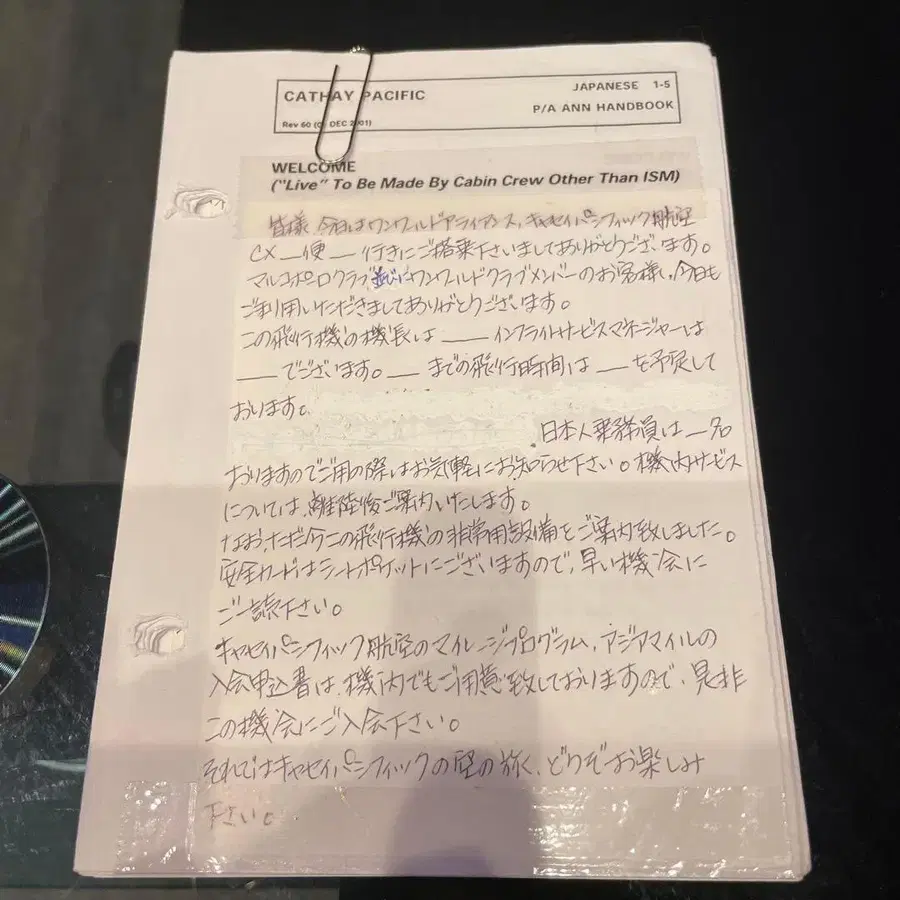 CATHAY PACIFIC
JAPANESE 1-5
P/A ANN HANDBOOK
Rev 60 (0 DEC 2001)
WELCOME
("Live" To Be Made By Cabin Crew Other Than ISM)
皆様、今日はワンワールドアライアンス、キャセイパシフィック航空
CX__便__行きにご搭乗下さいましてありがとうございます。
マルコポーロクラブ並びにワンワールドクラブメンバーのお客様、今日も
ご利用いただきましてありがとうございます。
この飛行機の機長は____インフライトサービスマネジャーは
__でございます。__までの飛行時間は__を予定して
おります。
日本人乗務員は__名
おりますのでご用の際はお気軽にお知らせ下さい。機内サービス
については、離陸後ご案内いたします。
なお、ただ今この飛行機の非常用設備をご案内致しました。
安全カードはシートポケットにございますので、早い機会に
ご一読下さい。
キャセイパシフィック航空のマイレージプログラム、アジアマイルの
入会申込書は、機内でもご用意致しておりますので、是非
この機会にご入会下さい。
それではキャセイパシフィックの空の旅、どうぞお楽しみ
下さい。